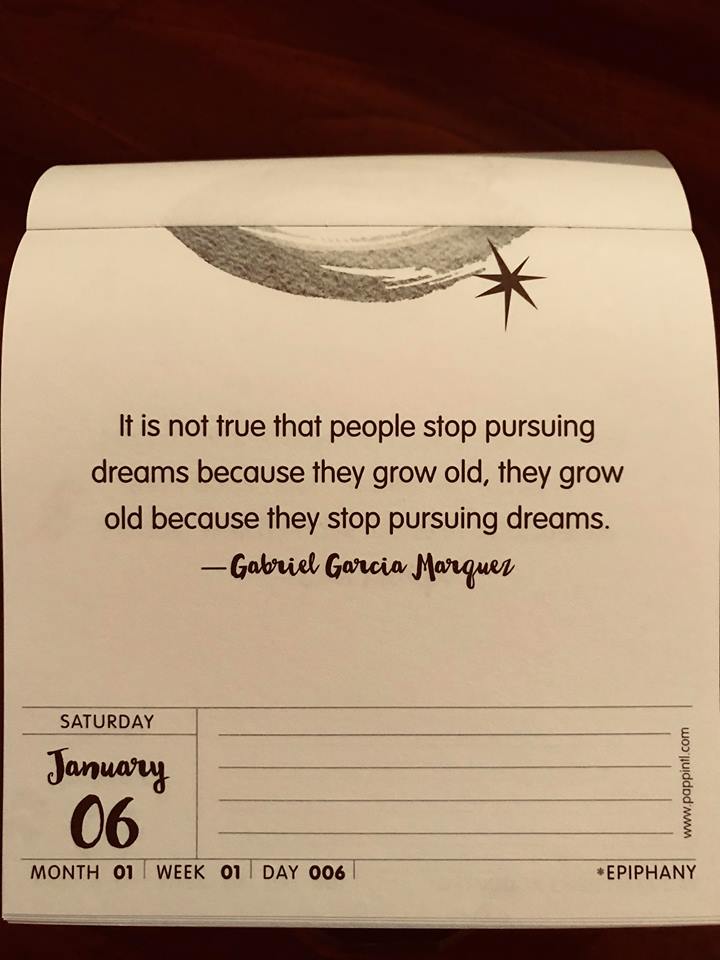 It is not true that people stop pursuing
dreams because they grow old, they grow
old because they stop pursuing dreams.
—Gabriel Garcia Marquez
SATURDAY
January
06
www.pappintl.com
MONTH 01 | WEEK 01 | DAY 006 |
*EPIPHANY